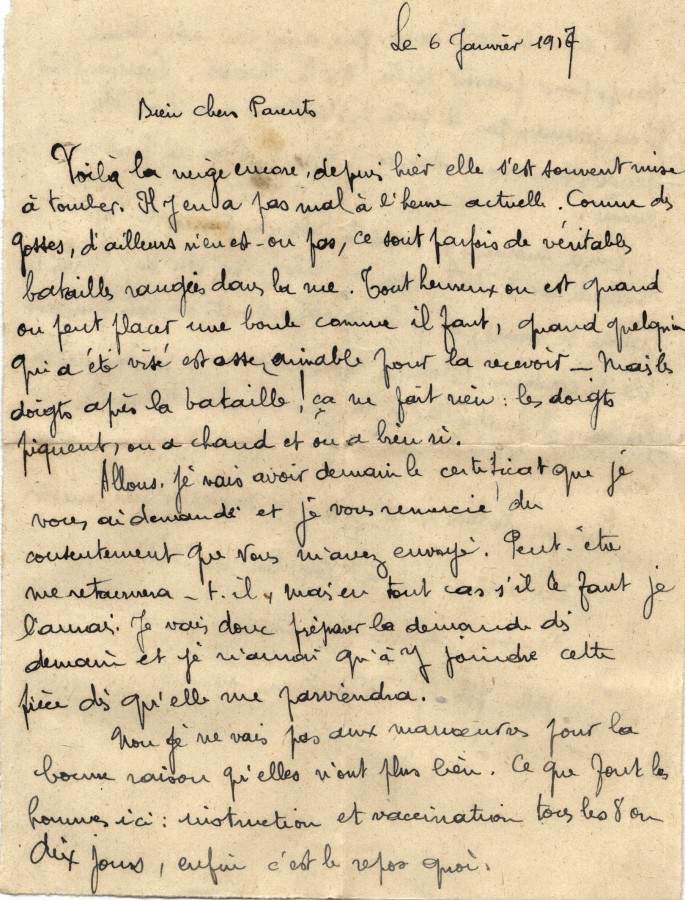 Le 6 Janvier 1917
Bien chers Parents
Voilà la neige encore, depuis hier elle s'est souvent mise
à tomber. Il y en a pas mal à l'heure actuelle. Comme des
gosses, d'ailleurs n'en est-on pas, ce sont parfois de véritables
batailles rangées dans la rue. Tout heureux on est quand
on peut placer une boule comme il faut, quand quelqu'un
qui a été visé est assez aimable pour la recevoir – Mais les
doigts après la bataille ! ça ne fait rien : les doigts
piquent, on a chaud et on a bien ri.
Allons. Je vais avoir demain le certificat que je
vous ai demandé et je vous remercie du
consentement que vous m'avez envoyé. Peut-être
me retournera-t-il, mais en tout cas s'il le faut je
l'aurai. Je vais donc préparer la demande dès
demain et je n'aurai qu'à y joindre cette
pièce dès qu'elle me parviendra.
Non je ne vais pas aux manœuvres pour la
bonne raison qu'elles n'ont plus lieu. Ce que font les
hommes ici : instruction et vaccination tous les 8 ou
dix jours, enfin c'est le repos quoi.